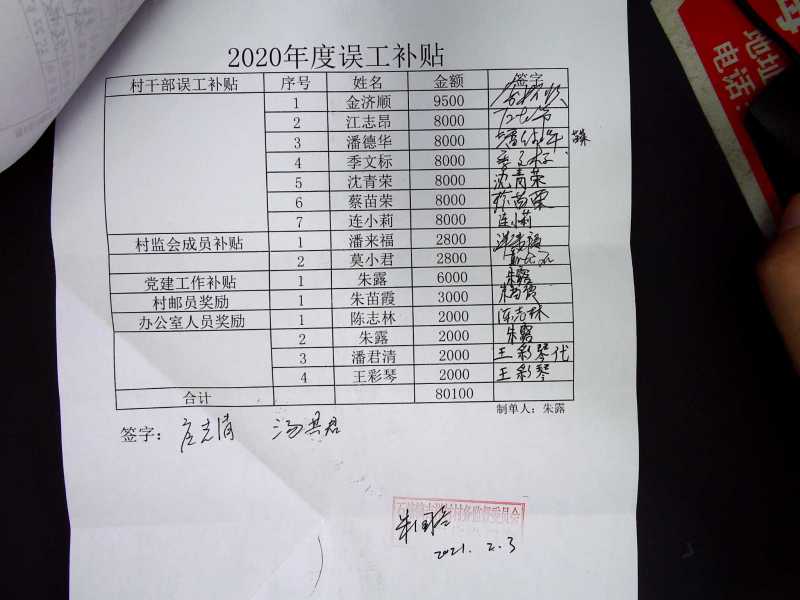 2020年度误工补贴
村干部误工补贴 序号 姓名 金额 签字
1 金济顺 9500
2 江志昂 8000
3 潘德华 8000
4 季文标 8000 季文标
5 沈青荣 8000 沈青荣
6 蔡苗荣 8000 蔡苗荣
7 连小莉 8000 连小莉
村监会成员补贴 1 潘来福 2800 潘来福
2 莫小君 2800
党建工作补贴 1 朱露 6000 朱露
村邮员奖励 1 朱苗霞 3000 朱苗霞
办公室人员奖励 1 陈志林 2000 陈志林
2 朱露 2000 朱露
3 潘君清 2000 王彩琴代
4 王彩琴 2000 王彩琴
合计 80100
制单人：朱露
签字：
村务监督委员会
2021.2.3
地址
电话：